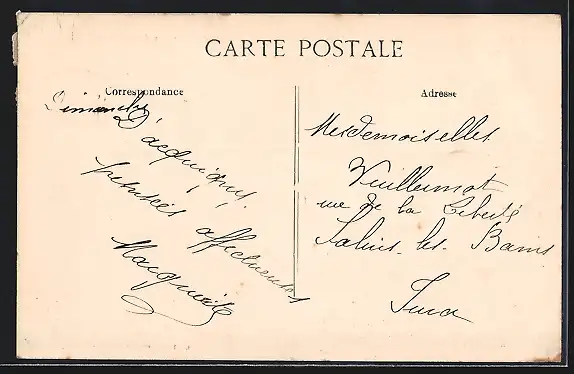 CARTE POSTALE
Correspondance
Dimanche
D'acquigny.
pensées affectueuses
Marguerite
Adresse
Mesdemoiselles
Vuillemot
rue de la Liberté
Salins-les-Bains
Jura